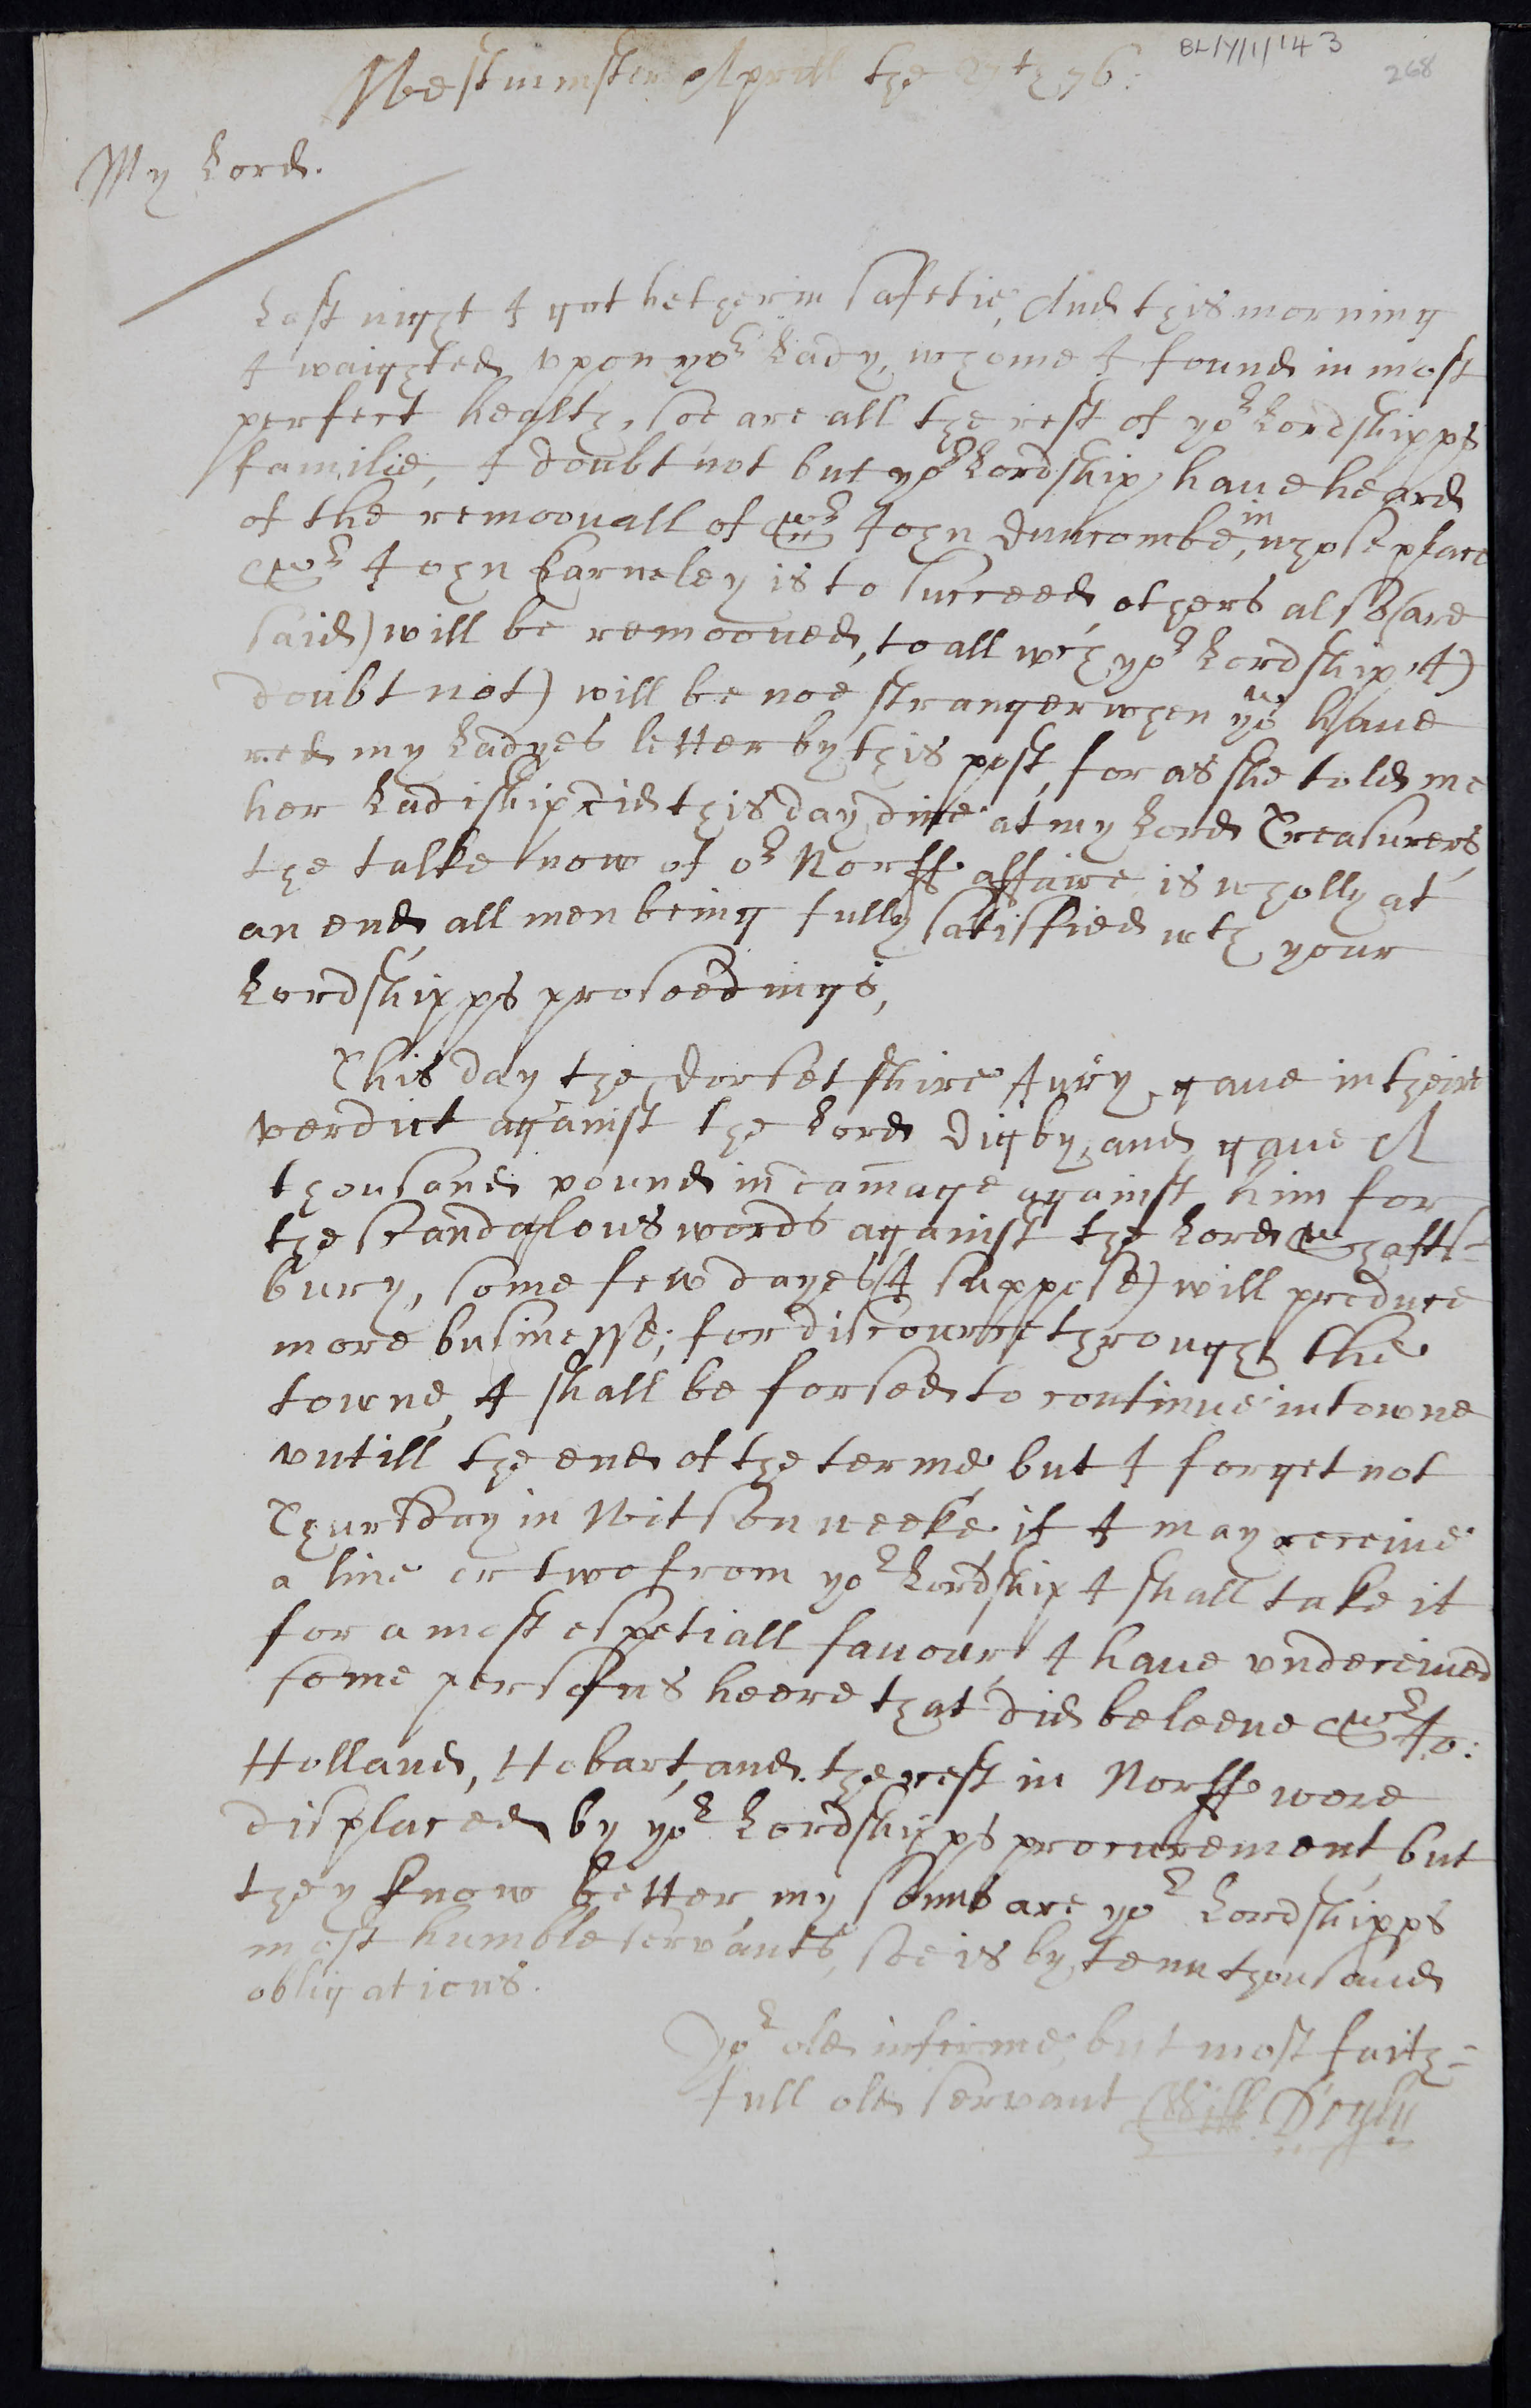 BL/Y/1/143
268
Westminster Aprill the 27th 76:
My Lord.
Last night I got hether in safetie, And this morning
I waighted vpon yor Lady, whome I found in most
perfect healty, soe are all the rest of yor Lordshipps
familie, I doubt not but yor Lordship haue heard
of the remoouall of Sr John Duncombe, in whose place
Sr John Earneley is to succeed, others also (are
said) will be remooued, to all wch yor Lordship (I)
doubt not) will be noe stranger when you haue
red my Ladyes letter by this post, for as she told me
her Ladiship did this day dine at my Lord Treasurers,
the talke now of or Norff affaire is wholly at
an end, all men being fully satisfied wth your
Lordshipps proseedings,
This day the Dorsetshire Jury gaue in theire
verdict against the Lord Digby, and gaue A
thousand pound in damage against him for
the scandalous words against the Lord Shafts=
bury, some few dayes (I suppose) will produce
more businesse; for discourse through the
towne, I shall be forsed to continue in towne
vntill the end of the terme, but I forget not
Thursday in Witson weeke, if I may receiue
a line or two from yor Lordship I shall take it
for a most espetiall fauour, I haue vndeceiued
some persons heere that did beleeue Sr Jo:
Holland, Hobart, and the rest in Norff were
displaced by yor Lordshipps procurement, but
they know better, my sonns are yor Lordshipps
most humble servants, soe is by tenn thousand
obligations.
Yor old infirme, but most faith=
full old servant Will: D'oyly